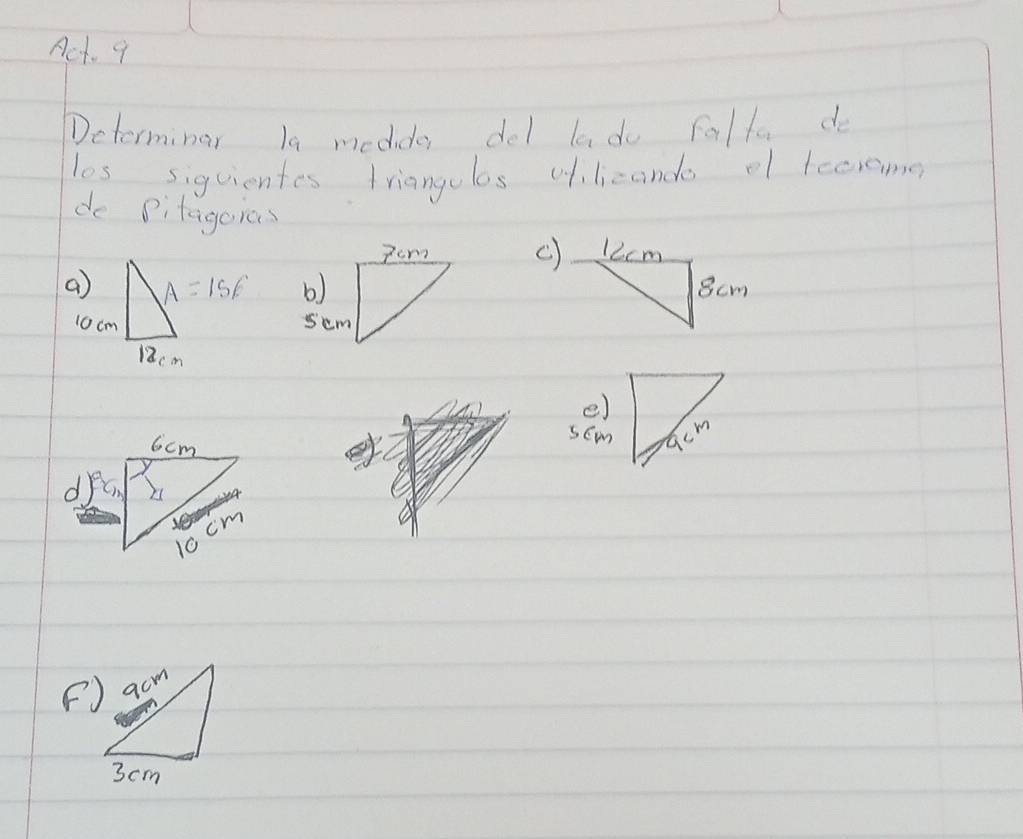 Act. 9
Determinar la medida del lado falta de
los siguientes triangulos utilizando el teorema
de Pitagoras
a) 10cm 12cm
b) 7cm 5cm
c) 12cm 8cm
d) 6cm 10 cm
e) 5cm 9cm
F) 9cm 3cm